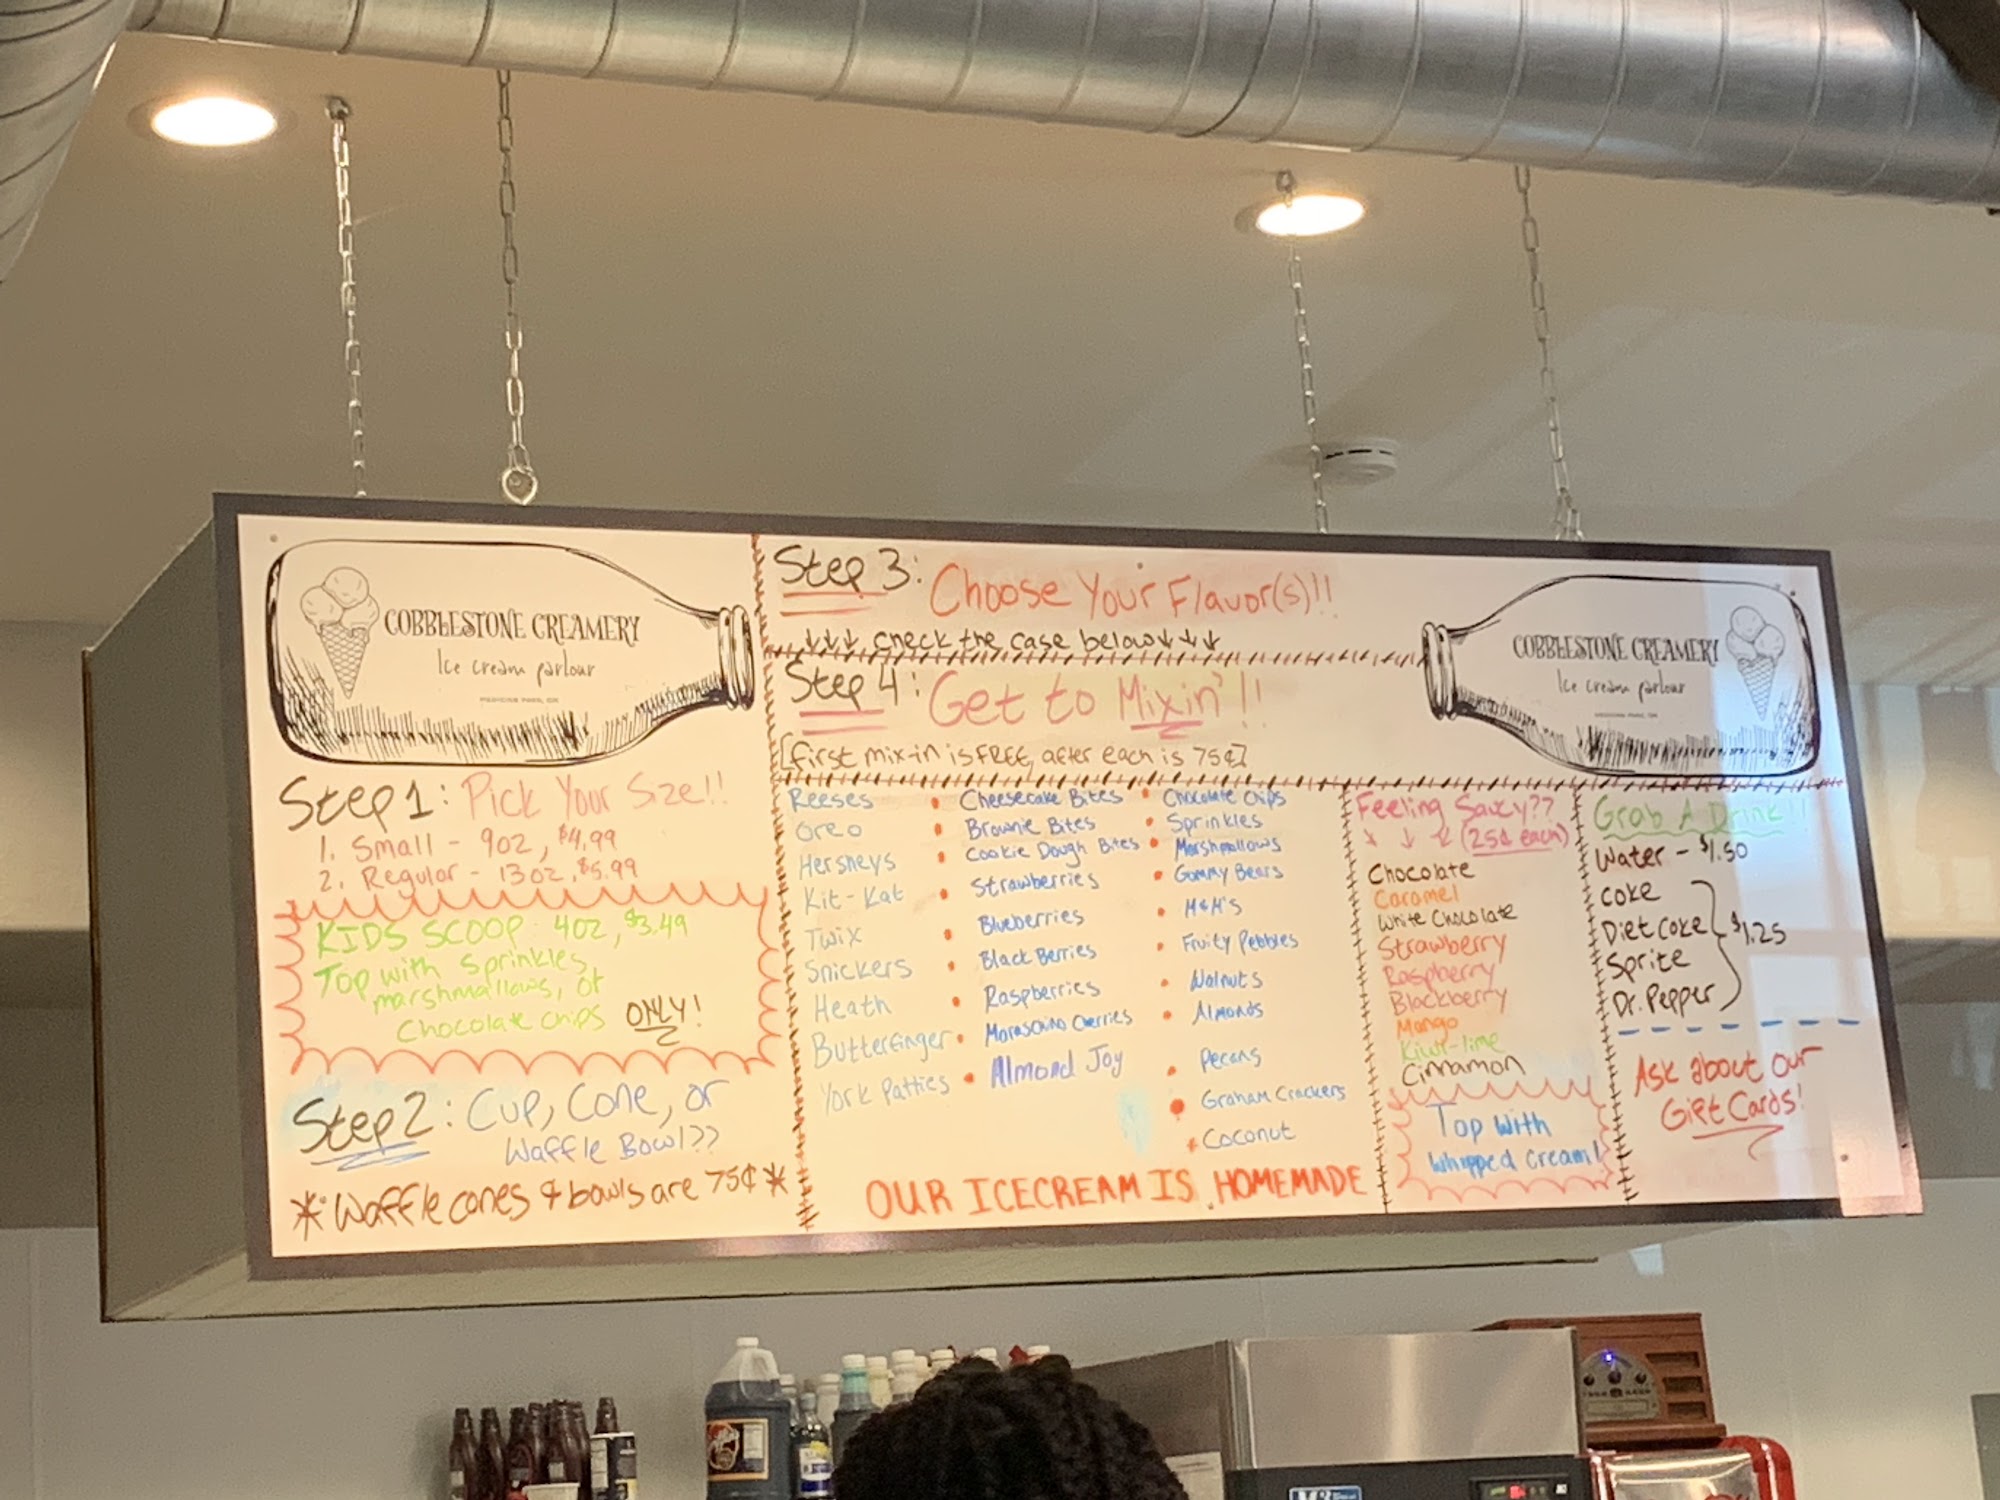 COBBLESTONE CREAMERY
Ice cream parlour
MEDICINE PARK, OK
Step 1: Pick Your Size!!
1. Small - 9oz, $4.99
2. Regular - 13oz, $5.99
KIDS SCOOP: 4oz, $3.49
Top with Sprinkles,
marshmallows, or
Chocolate chips ONLY!
Step 2: Cup, Cone, or
Waffle Bowl??
* Waffle cones & bowls are 75¢ *
Step 3: Choose Your Flavor(s)!!
↓↓↓ check the case below ↓↓↓
Step 4: Get to Mixin'!!
[first mix-in is FREE, after each is 75¢]
Reeses
Oreo
Hersheys
Kit-Kat
Twix
Snickers
Heath
Butterfinger
York Patties
• Cheesecake Bites
• Brownie Bites
• Cookie Dough Bites
• Strawberries
• Blueberries
• Black Berries
• Raspberries
• Maraschino Cherries
• Almond Joy
• Chocolate Chips
• Sprinkles
• Marshmallows
• Gummy Bears
• M&M's
• Fruity Pebbles
• Walnuts
• Almonds
• Pecans
• Graham Crackers
• Coconut
OUR ICECREAM IS HOMEMADE
COBBLESTONE CREAMERY
Ice cream parlour
MEDICINE PARK, OK
Feeling Saucy??
↓ ↓ ↓ (25¢ each)
Chocolate
Caramel
White Chocolate
Strawberry
Raspberry
Blackberry
Mango
Kiwi-lime
Cinnamon
Top with
whipped cream!
Grab A Drink!!
Water - $1.50
Coke
Diet Coke
Sprite
Dr. Pepper
$1.25
Ask about our
Gift Cards!